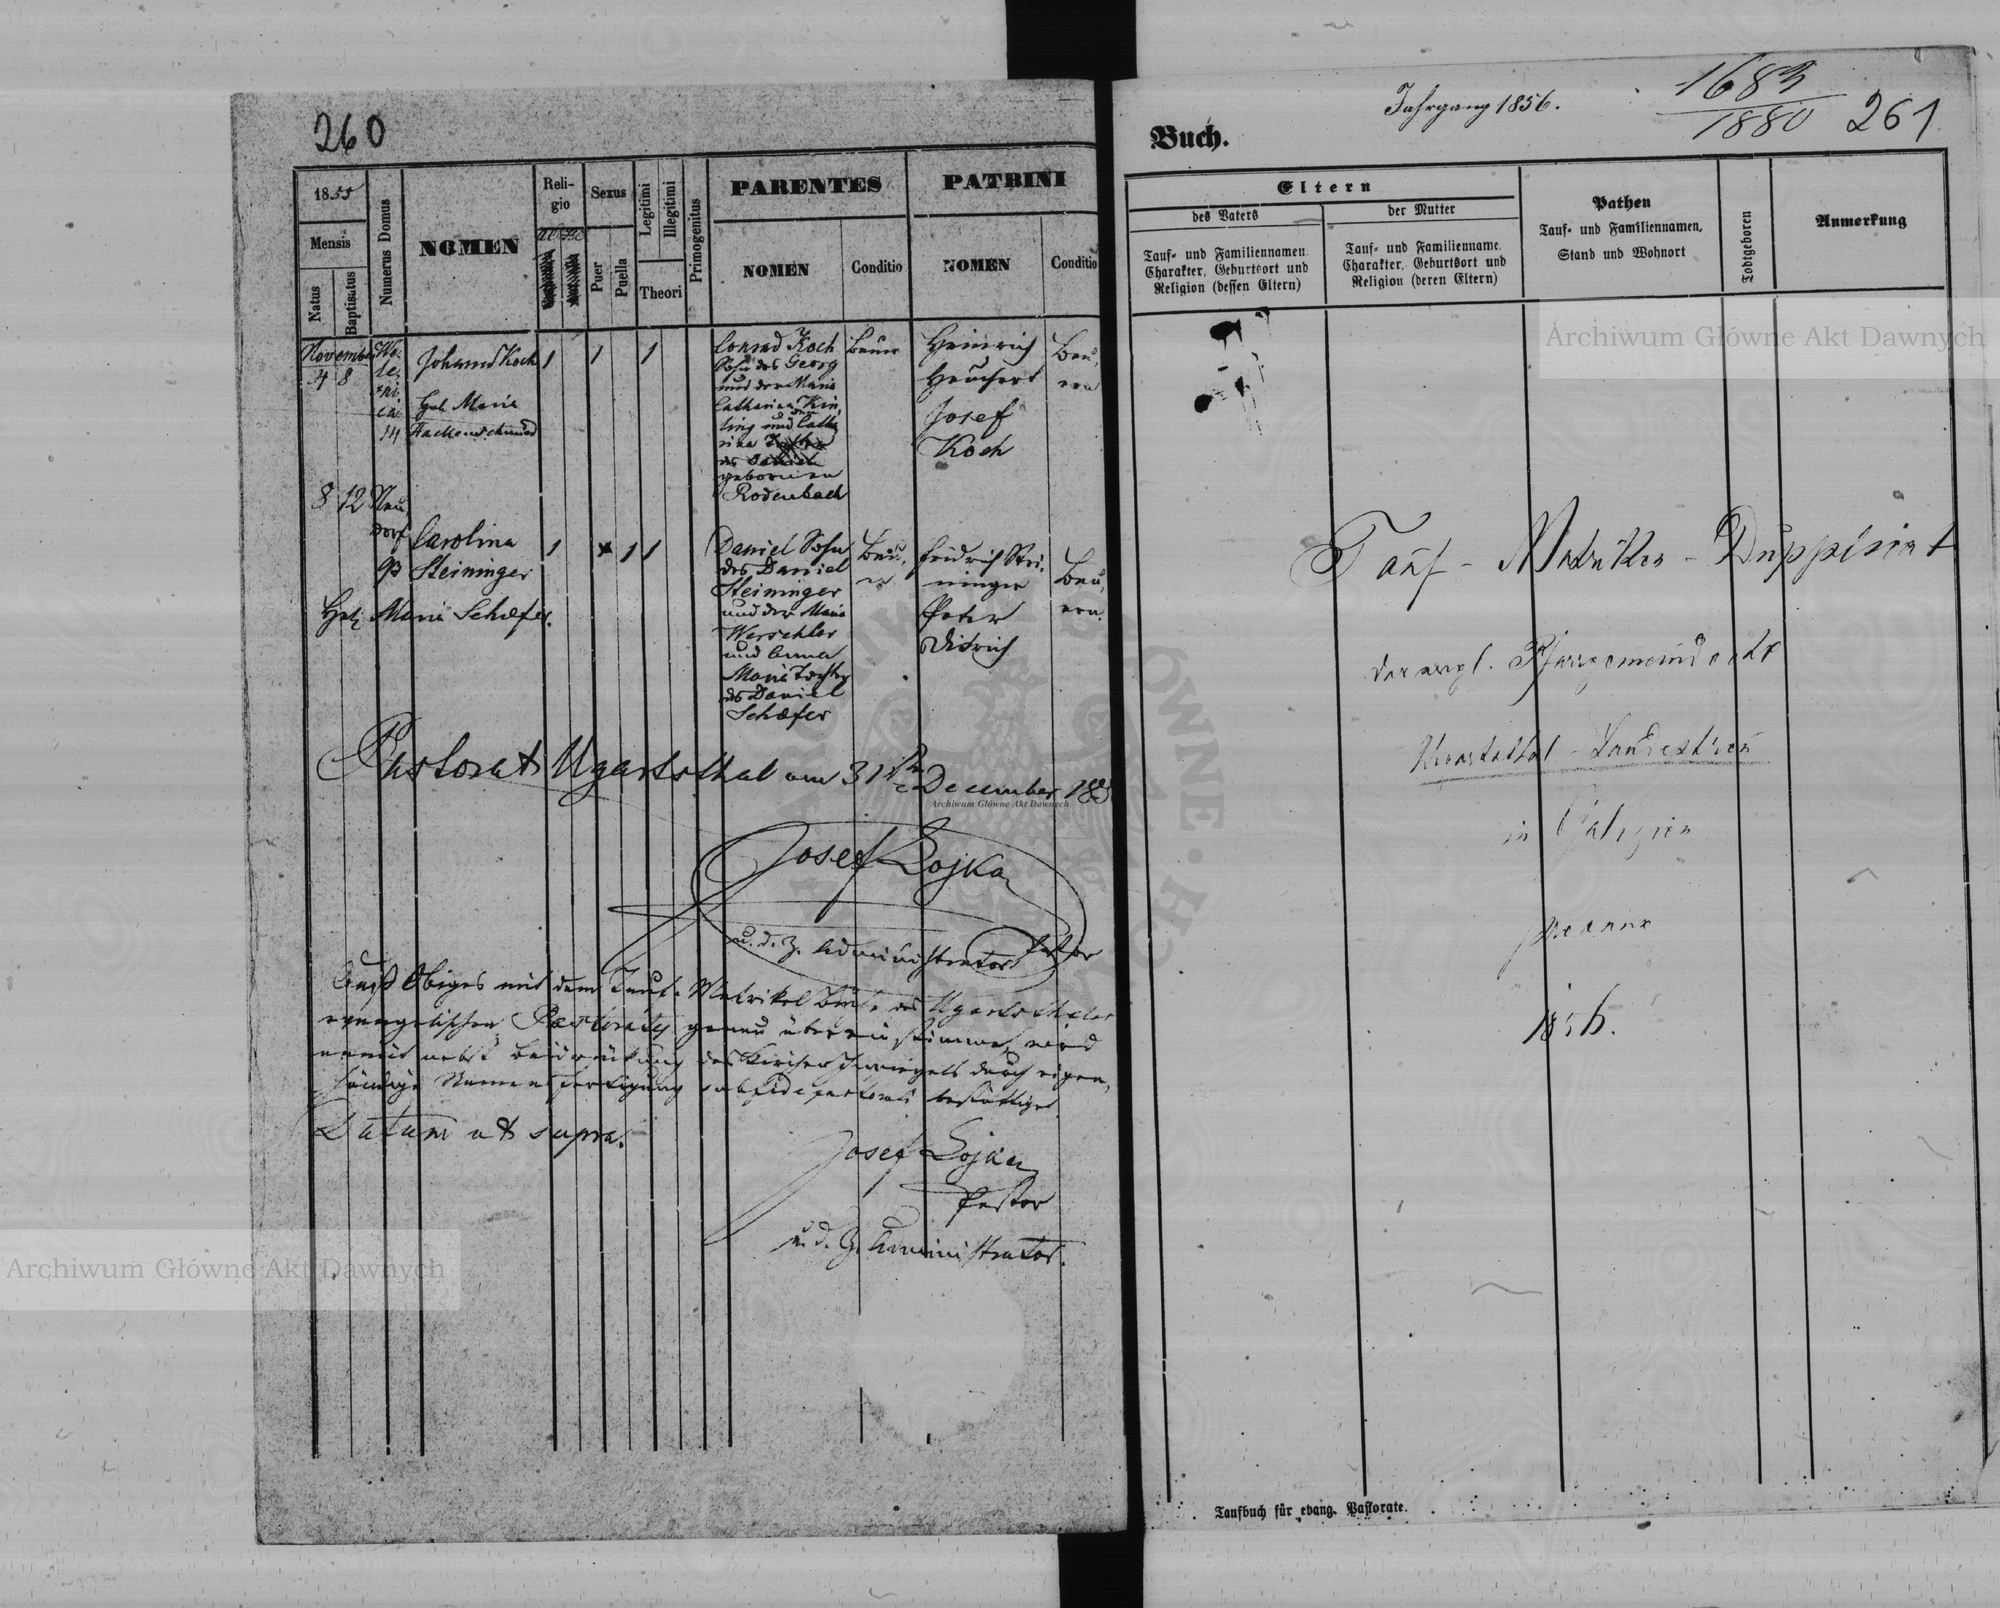 260
1855
Mensis
Natus
Baptisatus
Numerus Domus
NOMEN
Reli-
gio
Sexus
Puer
Puella
Legitimi
Illegitimi
Theori
Primogenitus
PARENTES
NOMEN
Conditio
PATRINI
NOMEN
Conditio
November
4 8
Johann Koch
1 1 1
Heb. Maria
Hackenschmied
Conrad Koch
Sohn des Georg
und der Maria
Catharina Kin
ling und Catha
rina
gebornen
Rodenbach
Bauer
Heinrich
Heuchert
Josef
Koch
Bau
ern
8 12 Neu
dorf
93
Carolina
Steininger
1 1 1
Heb. Maria Schæfer.
Daniel Sohn
des Daniel
Steininger
und der Maria
Werschler
und Anna
Maria Tochter
des Daniel
Schæfer
Bau
er
Fridrich Stei
ninger
Peter
Ditrich
Bau
ern.
Pastorat Ugartsthal am 31ten December 185
Josef Lojka
Pastor
u. d. Z. Administrator
Daß Obiges mit dem Tauf-Matrikel Buche des Ugartsthaler
evangelischen Pastorats genau übereinstimme, wird
nebst Beidrückung des Kirchen durch eigen
händige Namensfertigung sub fide pastorali bestättiget.
Datum ut supra.
Josef Lojka
Pastor
u. d. Z. Administrator.
Jahrgang 1856.
1683
1880
261
Buch.
Eltern
des Vaters
der Mutter
Tauf- und Familiennamen
Charakter, Geburtsort und
Religion (dessen Eltern)
Tauf- und Familienname
Charakter, Geburtsort und
Religion (deren Eltern)
Pathen
Tauf- und Familiennamen,
Stand und Wohnort
Todtgeboren
Anmerkung
Tauf - Matriken - Dupplicat
der evgl. Pfarrgemeinde
Ugartsthal - Landestreu
in Galizien
pro anno
1856.
Taufbuch für evang. Pastorate.
Archiwum Główne Akt Dawnych
Archiwum Główne Akt Dawnych
Archiwum Główne Akt Dawnych